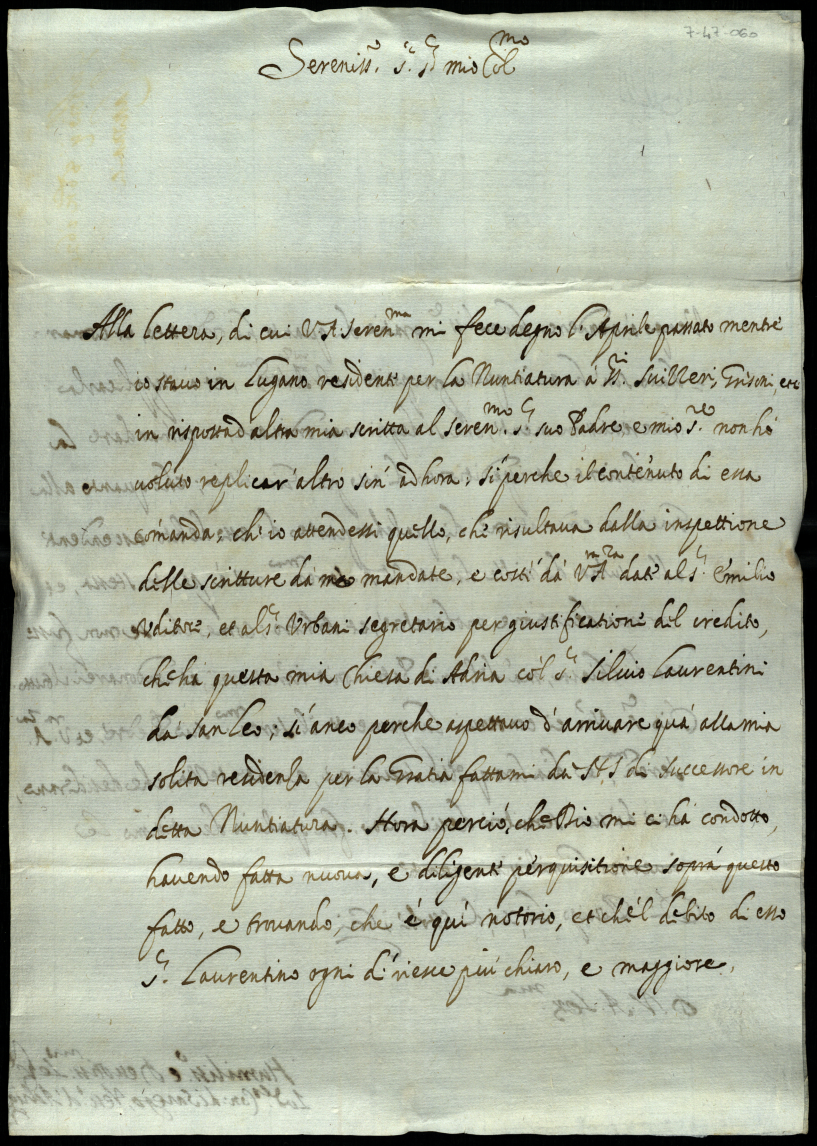 7-47-060
Sereniss.o S.r P.ron mio Col.mo
Alla lettera, di cui V.A. Seren.ma mi fece degno l'Aprile passato mentre
io stavo in Lugano resident per la Nuntiatura á SS.ri Suizzeri, Grisoni, etc
in risposta d'altra mia scritta al Seren.mo S.r suo Padre e mio S.re non hó
voluto replicar' altro sin' ad hora; sí perche il contenuto di essa
comanda, ch' io attendessi quello, che risultava dalla inspettione
delle scritture da mè mandate, e costí dá V.A. date al S.r Emilio
Uditore, et al S.r Urbani segretario per giustificatione del credito,
che há questa mia Chiesa di Adria cól S.r Silvio Laurentini
dá San Leo; sí anco perche aspettavo d' arrivare quá alla mia
solita residenza per la Gratia fattami dá N.S. di successore in
detta Nuntiatura. Hora perció, che Dio mi ci há condotto,
havendo fatta nuova, e diligente perquisitione soprá questo
fatto, e trovando, che é quí notorio, et ché 'l debito di esso
S.r Laurentino ogni dí riesce piú chiaro, e maggiore,